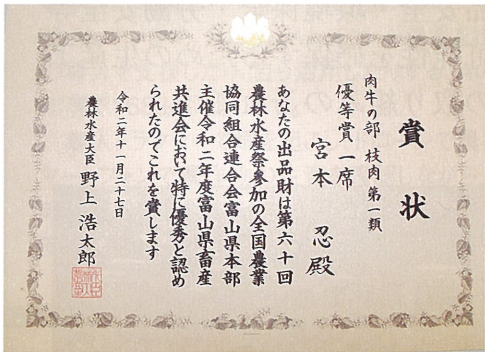 賞状
肉牛の部 枝肉 第一類
優等賞 一席
宮本 忍 殿
あなたの出品財は第六十回
農林水産祭参加の全国農業
協同組合連合会富山県本部
主催令和二年度富山県畜産
共進会において特に優秀と認め
られたのでこれを賞します
令和二年十一月二十七日
農林水産大臣 野上 浩太郎